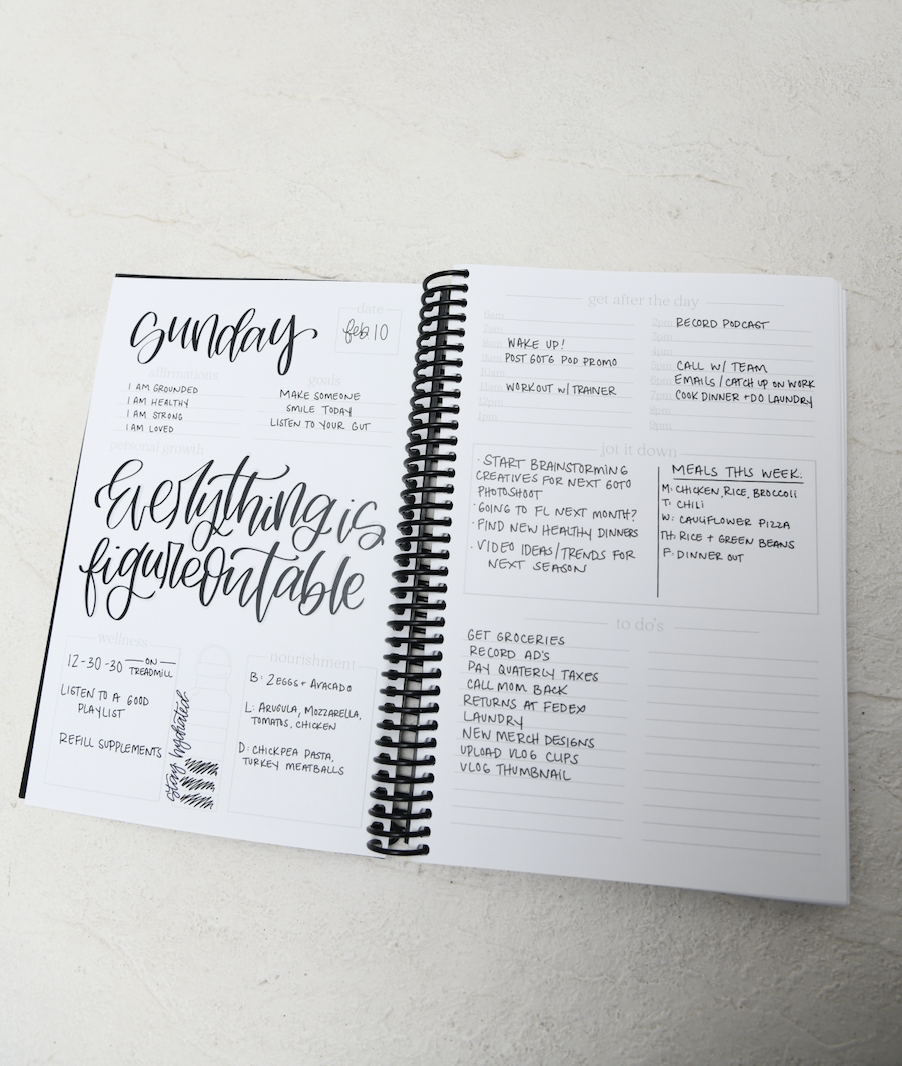 sunday
date
feb 10
affirmations
I AM GROUNDED
I AM HEALTHY
I AM STRONG
I AM LOVED
goals
MAKE SOMEONE
SMILE TODAY
LISTEN TO YOUR GUT
personal growth
Everything is
figureoutable
wellness
12-30-30 ON
TREADMILL
LISTEN TO A GOOD
PLAYLIST
REFILL SUPPLEMENTS
stay hydrated
nourishment
B: 2 EGGS + AVACADO
L: ARUGULA, MOZZARELLA,
TOMATOS, CHICKEN
D: CHICKPEA PASTA,
TURKEY MEATBALLS
get after the day
6am
7am
8am WAKE UP!
9am POST GOTG POD PROMO
10am
11am WORKOUT W/ TRAINER
12pm
1pm
2pm RECORD PODCAST
3pm
4pm
5pm CALL W/ TEAM
6pm EMAILS / CATCH UP ON WORK
7pm COOK DINNER + DO LAUNDRY
8pm
9pm
jot it down
· START BRAINSTORMING
CREATIVES FOR NEXT GOTG
PHOTOSHOOT
· GOING TO FL NEXT MONTH?
· FIND NEW HEALTHY DINNERS
· VIDEO IDEAS/TRENDS FOR
NEXT SEASON
MEALS THIS WEEK:
M: CHICKEN, RICE, BROCCOLI
T: CHILI
W: CAULIFLOWER PIZZA
TH: RICE + GREEN BEANS
F: DINNER OUT
to do's
GET GROCERIES
RECORD AD'S
PAY QUATERLY TAXES
CALL MOM BACK
RETURNS AT FEDEX
LAUNDRY
NEW MERCH DESIGNS
UPLOAD VLOG CLIPS
VLOG THUMBNAIL